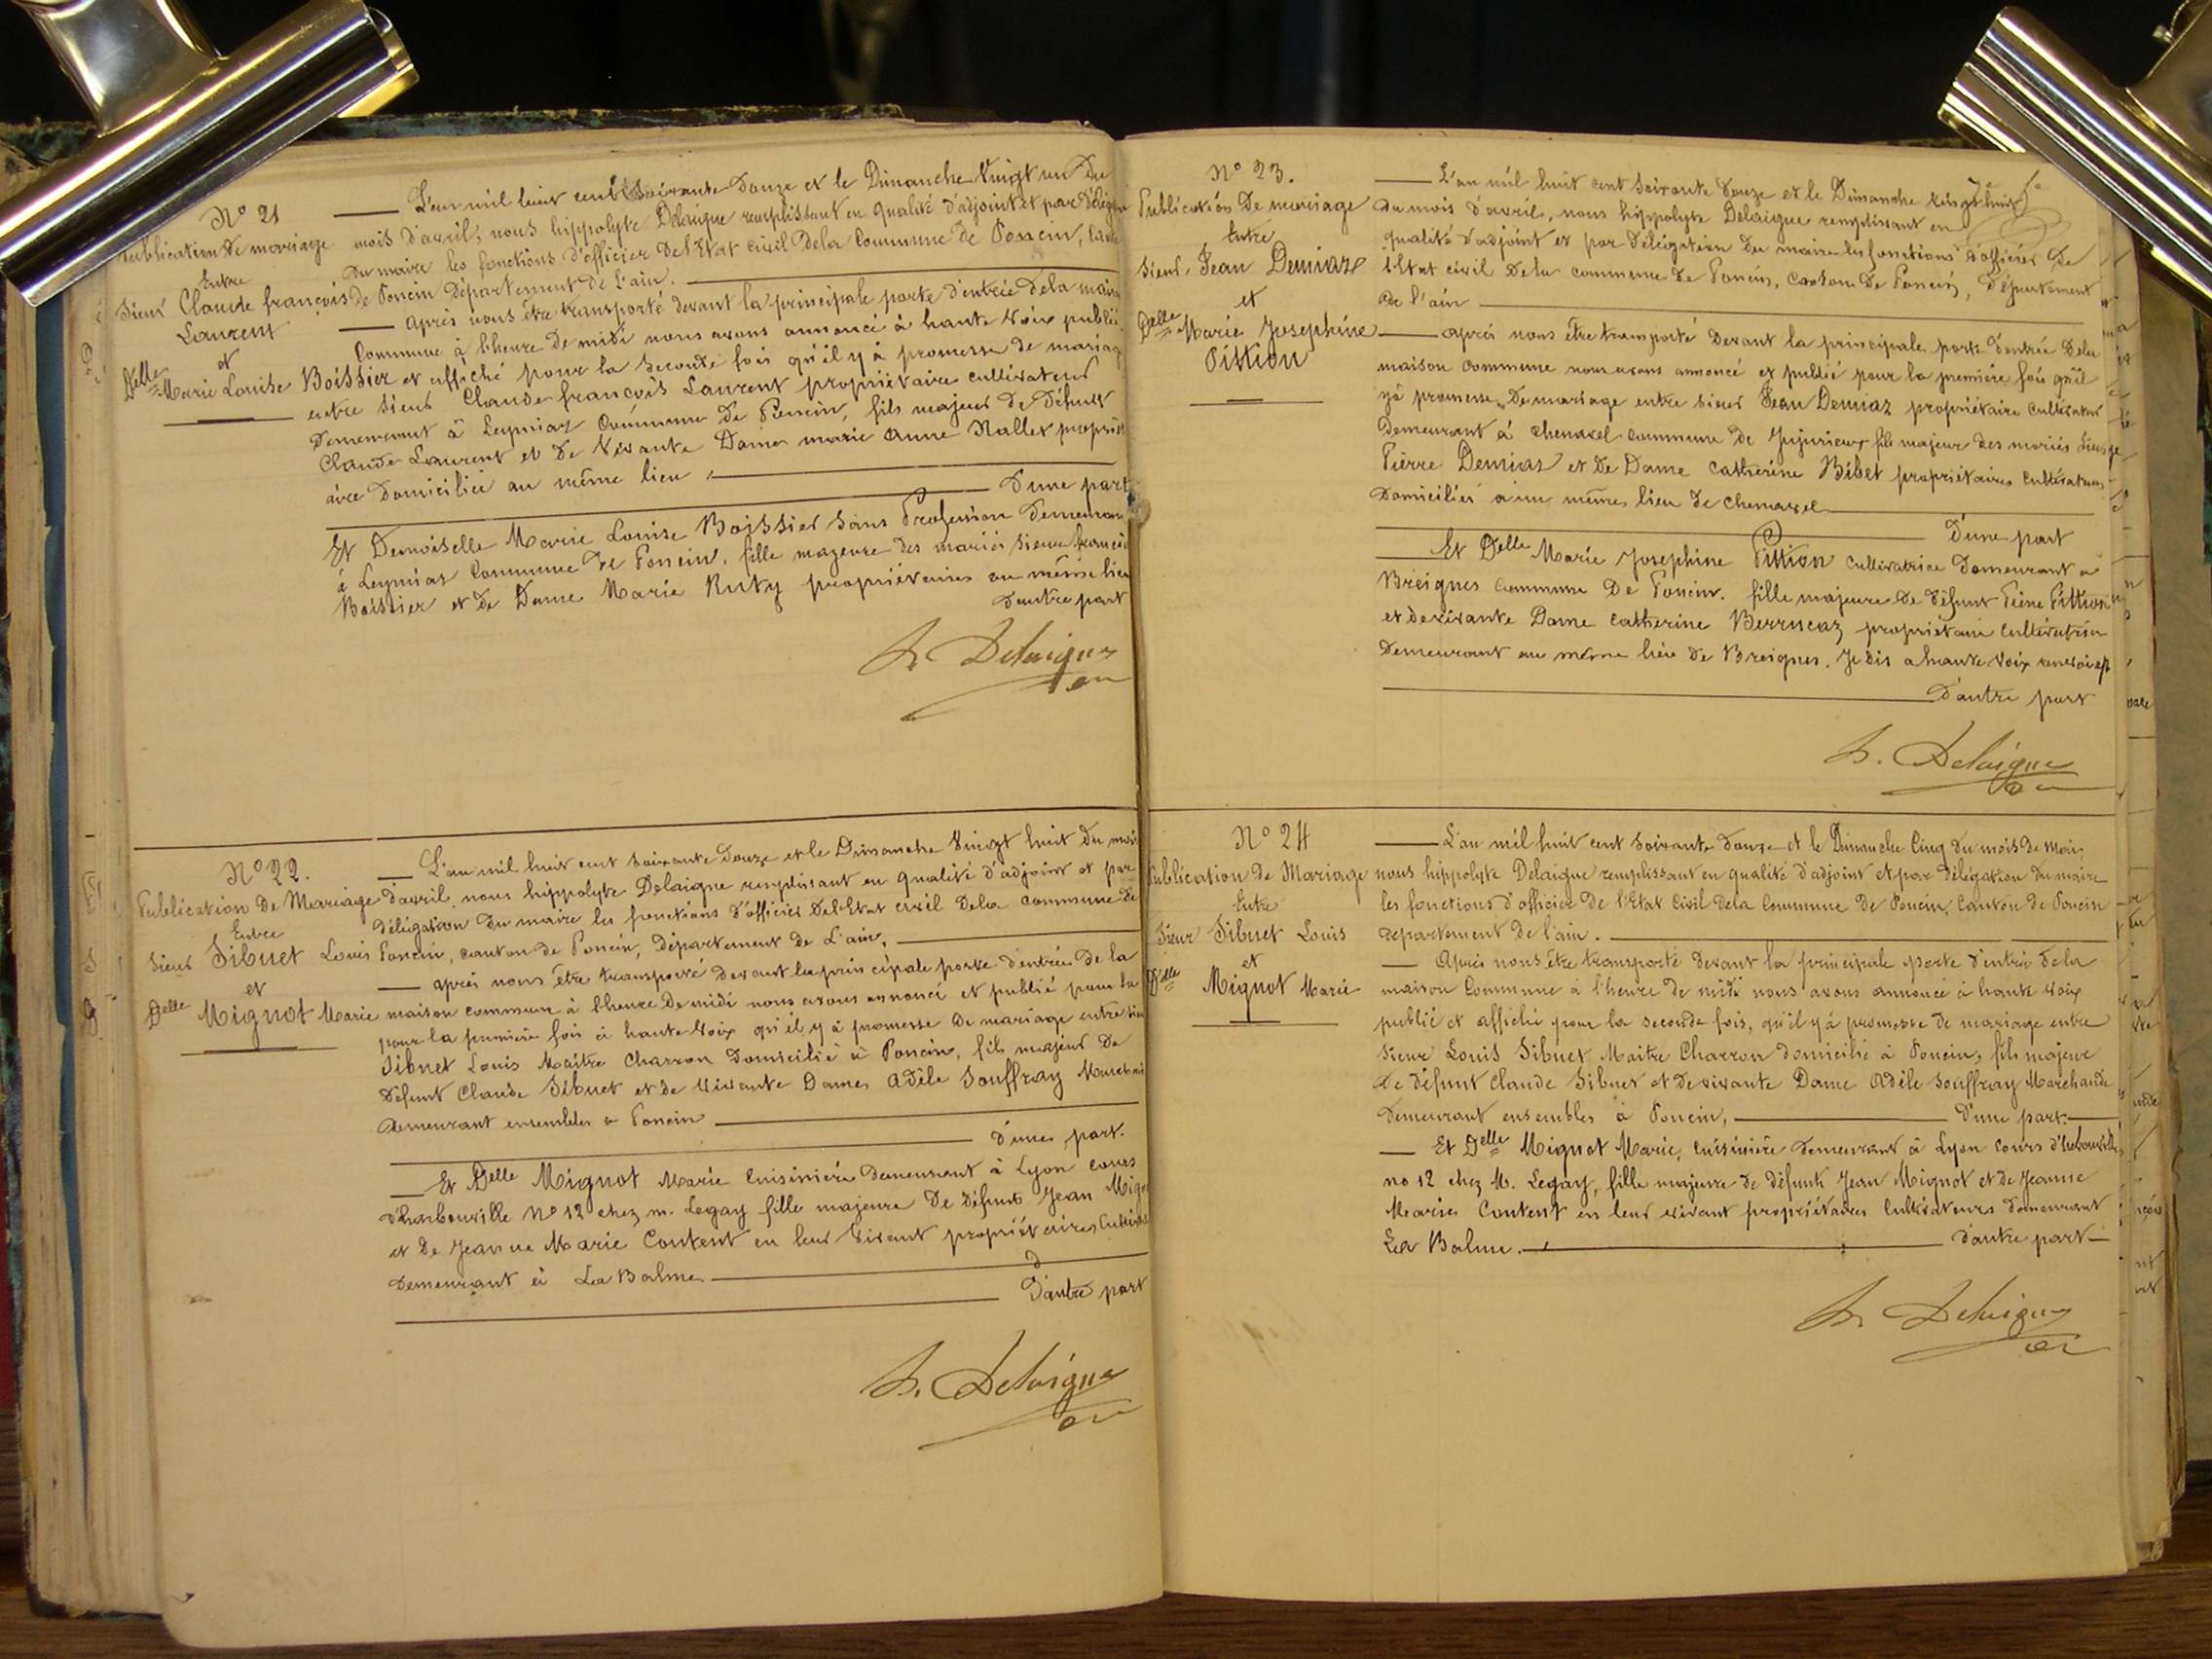 N° 21
Publication de mariage
Entre
Sieur Claude françois
Laurent
et
Delle Marie Louise Boissier
L'an mil huit cent soixante douze et le Dimanche Vingt un Du
mois d'avril, nous hippolyte Delaigue remplissant en qualité d'adjoint et par délégation
du maire les fonctions d'officier de l'Etat civil dela Commune de Poncin, Canton
de Poncin Département de L'ain.
après nous être transporté devant la principale porte d'entrée dela maison
Commune à l'heure de midi nous avons annoncé à haute Voix publié
et affiché pour la seconde fois qu'il y à promesse de mariage
entre sieur Claude françois Laurent propriétaire cultivateur
demeurant à Leymiaz Commune de Poncin, fils majeur de Défunt
Claude Laurent et de Vivante Dame marie anne Nallet propriét
aire Domiciliée au même lieu
d'une part
Et Demoiselle Marie Louise Boissier sans Profession demeurant
à Leymiaz Commune de Poncin, fille majeure des mariés sieur françois
Boissier et de Dame Marie Ruty propriétaires au même lieu
d'autre part
h Delaigue
N° 22.
Publication de Mariage
Entre
Sieur Sibuet Louis
et
Delle Mignot Marie
L'an mil huit cent soixante douze et le Dimanche Vingt huit du mois
d'avril, nous hippolyte Delaigue remplissant en qualité d'adjoint et par
délégation du maire les fonctions d'officier del'Etat civil dela commune de
Poncin, canton de Poncin, Département de L'ain,
après nous être transporté devant la principale porte d'entrée de la
maison commune à l'heure de midi nous avons annoncé et publié pour la
pour la première fois à haute Voix qu'il y à promesse de mariage entre sieur
Sibuet Louis Maître Charron domicilié à Poncin, fils majeur de
défunt Claude Sibuet et de Vivante Dame adèle Souffray Marchande
demeurant ensembles à Poncin
d'une part.
Et Delle Mignot Marie Cuisinière demeurant à Lyon cours
d'herbouville N° 12 chez m. Legay fille majeure de défunts Jean Mignot
et de Jeanne Marie Content en leur Vivant propriétaires Cultivat
demeurant à La Balme
d'autre part
h. Delaigue
N° 23.
Publication de mariage
Entre
Sieur Jean Demiaz
et
Delle Marie Josephine
Pittion
7e fo
L'an mil huit cent soixante douze et le Dimanche vingt huit
du mois d'avril, nous hippolyte Delaigue remplissant en
qualité d'adjoint et par délégation du maire les fonctions d'officier de
l'Etat civil dela commune de Poncin, canton de Poncin, Département
de l'ain
après nous être transporté devant la principale porte d'entrée dela
maison commune nous avons annoncé et publié pour la première fois qu'il
y à promesse de mariage entre sieur Jean Demiaz propriétaire cultivateur
demeurant à chenavel commune de Jujurieux fils majeur des mariés sieur
Pierre Demiaz et de Dame Catherine Bibet propriétaires cultivateurs
domiciliés à un même lieu de chenavel
d'une part
Et Delle Marie Josephine Pittion cultivatrice demeurant à
Breignes Commune De Poncin. fille majeure de défunt Pierre Pittion
et devivante Dame Catherine Berrucaz propriétaire cultivatrice
demeurant au même lieu de Breignes. Je dis à haute Voix renvoi app
d'autre part
h. Delaigue
N° 24
Publication de Mariage
Entre
Sieur Sibuet Louis
et
Delle Mignot Marie
L'an mil huit cent soixante douze et le Dimanche Cinq du mois de Mai,
nous hippolyte Delaigue remplissant en qualité d'adjoint et par délégation du maire
les fonctions d'officier de l'Etat Civil dela Commune de Poncin, Canton de Poncin
département de l'ain.
Après nous être transporté devant la principale porte d'entrée dela
maison Commune à l'heure de midi nous avons annoncé à haute voix
publié et affiché pour la seconde fois, qu'il y à promesse de mariage entre
Sieur Louis Sibuet Maître Charron domicilié à Poncin, fils majeur
de défunt Claude Sibuet et de vivante Dame Adèle Souffray Marchande
demeurant ensembles à Poncin, d'une part.
Et Delle Mignot Marie, cuisinière demeurant à Lyon Cours d'herbouville
no 12 chez M. Legay, fille majeure de défunts Jean Mignot et de Jeanne
Marie Content en leur vivant propriétaires Cultivateurs demeurant
La Balme. d'autre part
h. Delaigue